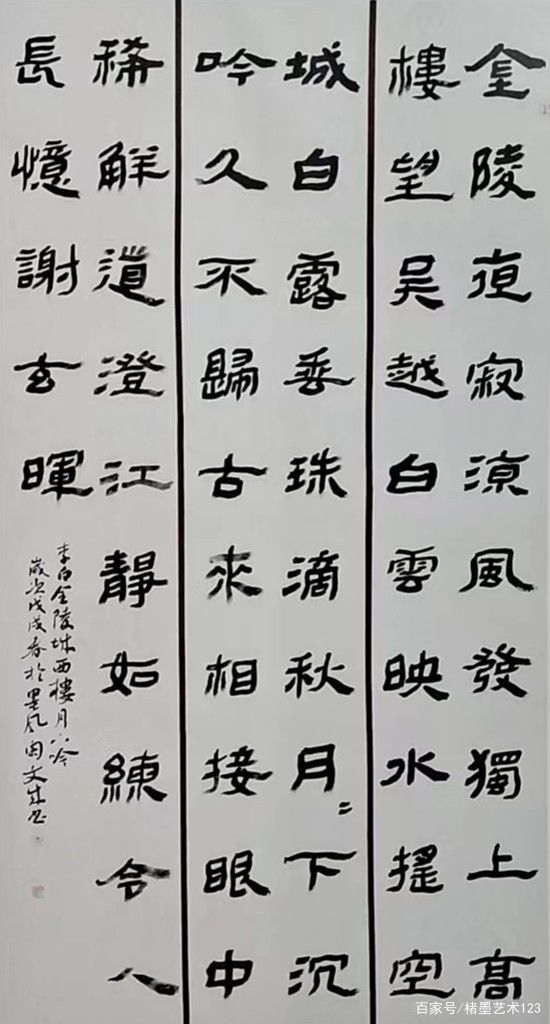 金陵夜寂涼風發獨上高
樓望吴越白雲映水搖空
城白露垂珠滴秋月〻下沉
吟久不歸古來相接眼中
稀解道澄江靜如練令人
長憶謝玄暉
李白金陵城西樓月下吟
歲次戊戌春於墨风文书
百家号/楮墨艺术123